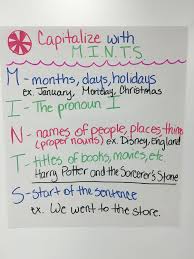 Capitalize with
M.I.N.T.S
M - months, days, holidays
ex. January, Monday, Christmas
I - The pronoun I
N - names of people, places, things
(proper nouns) ex. Disney, England
T - titles of books, movies, etc.
Harry Potter and the Sorcerer's Stone
S - start of the sentence
ex. We went to the store.